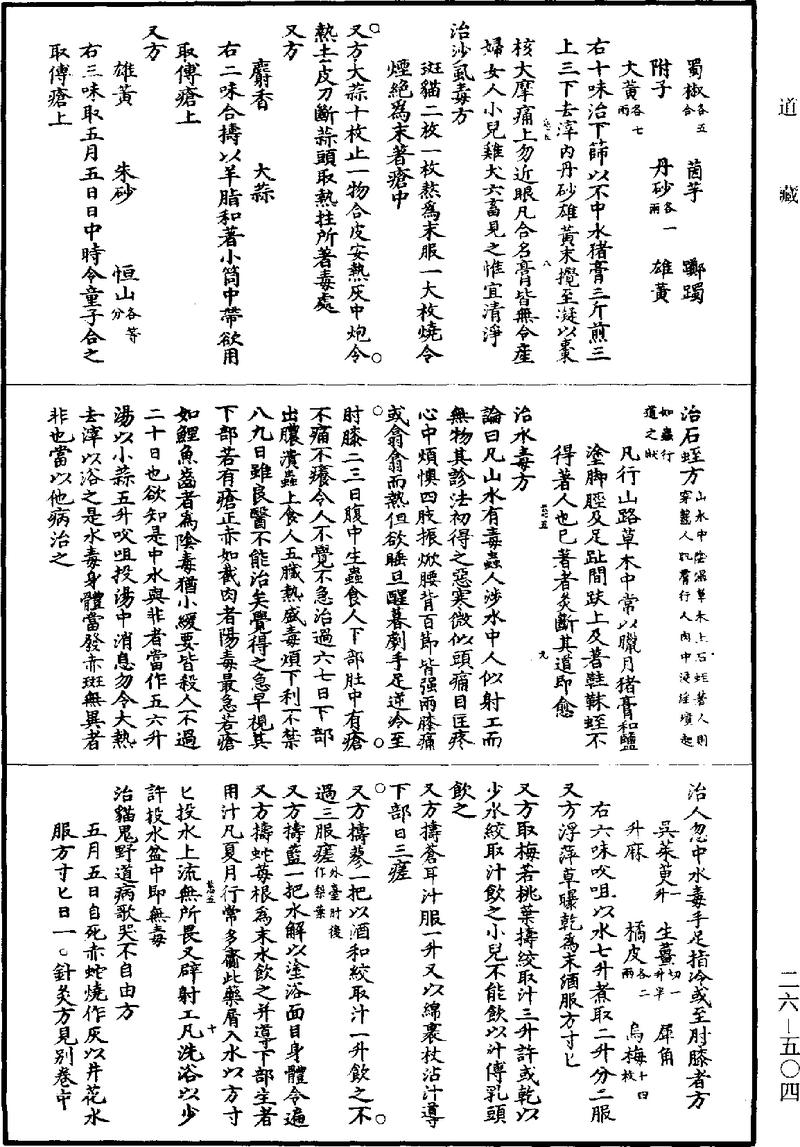 道藏
蜀椒各五合 茵芋 躑躅
附子 丹砂各一兩 雄黃
大黃各七兩
右十味治下篩以不中水猪膏三斤煎三
上三下去滓內丹砂雄黃末攪至凝以棗
核大摩痛上勿近眼凡合名膏皆無令産
婦女人小兒雞犬六畜見之惟宜清淨
治沙虱毒方
斑貓二枚一枚熬爲末服一大枚燒令
煙絶爲末著瘡中
又方大蒜十枚止一物合皮安熱灰中炮令
熱去皮刀斷蒜頭取熱拄所著毒處
又方
麝香 大蒜
右二味合擣以羊脂和著小筒中帶欲用
取傅瘡上
又方
雄黃 朱砂 恒山各等分
右三味取五月五日日中時令童子合之
取傅瘡上
治石蛭方山水中陰濕草木上石蛭著人則穿齧人肌膚行人肉中浸淫墳起如蟲行道之狀
凡行山路草木中常以臘月猪膏和鹽
塗脚脛及足趾間趺上及著鞋靺蛭不
得著人也已著者灸斷其道即愈
治水毒方
論曰凡山水有毒蟲人涉水中人似射工而
無物其診法初得之惡寒微似頭痛目匡疼
心中煩懊四肢振焮腰背百節皆强兩膝痛
或翕翕而熱但欲睡旦醒暮劇手足逆冷至
肘膝二三日腹中生蟲食人下部肚中有瘡
不痛不癢令人不覺不急治過六七日下部
出膿潰蟲上食人五臟熱盛毒煩下利不禁
八九日雖良醫不能治矣覺得之急早視其
下部若有瘡正赤如截肉者陽毒最急若瘡
如鯉魚齒者為陰毒猶小緩要皆殺人不過
二十日也欲知是中水與非者當作五六升
湯以小蒜五升㕮咀投湯中消息勿令大熱
去滓以浴之是水毒身體當發赤斑無異者
非也當以他病治之
治人忽中水毒手足指冷或至肘膝者方
吳茱萸一升 生薑切一升半 犀角
升麻 橘皮各二兩 烏梅十四枚
右六味㕮咀以水七升煮取二升分二服
又方浮萍草曝乾為末酒服方寸匕
又方取梅若桃葉擣絞取汁三升許或乾以
少水絞取汁飲之小兒不能飲以汁傅乳頭
飲之
又方擣蒼耳汁服一升又以綿裹杖沾汁導
下部日三瘥
又方擣蓼一把以酒和絞取汁一升飲之不
過三服瘥外臺肘後作梨葉
又方擣藍一把水解以塗浴面目身體令遍
又方擣蛇莓根為末水飲之并導下部生者
用汁凡夏月行常多齎此藥屑入水以方寸
匕投水上流無所畏又辟射工凡洗浴以少
許投水盆中即無毒
治貓鬼野道病歌哭不自由方
五月五日自死赤蛇燒作灰以井花水
服方寸匕日一。針灸方見別卷中
二六—五〇四